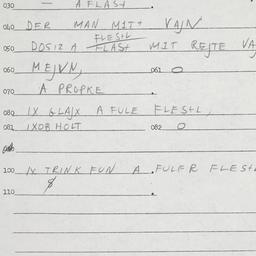 030 — A FLASH
040 DER MAN MIT VAJN
FLESHL
050 DOS IZ A FLASH MIT REJTE VA
060 MEJVN, 061 O
070 A PROPKE
080 IX GLAJX A FULE FLESHL,
081 IX OB HOLT 082 O
100 IX TRINK FUN A FULER FLESHL
110